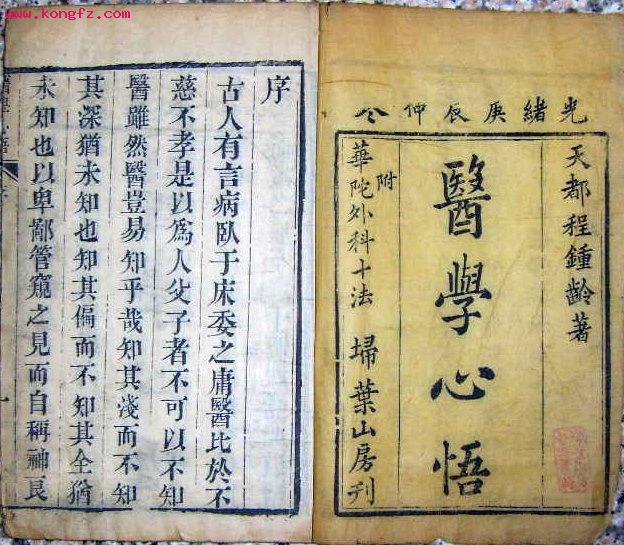 www.kongfz.com
光緒庚辰仲冬
天都程鍾齡著
醫學心悟
附
華陀外科十法
埽葉山房刋
序
古人有言病臥于床委之庸醫比於不
慈不孝是以爲人父子者不可以不知
醫雖然醫豈易知乎哉知其淺而不知
其深猶未知也知其偏而不知其全猶
未知也以卑鄙管窺之見而自稱神良